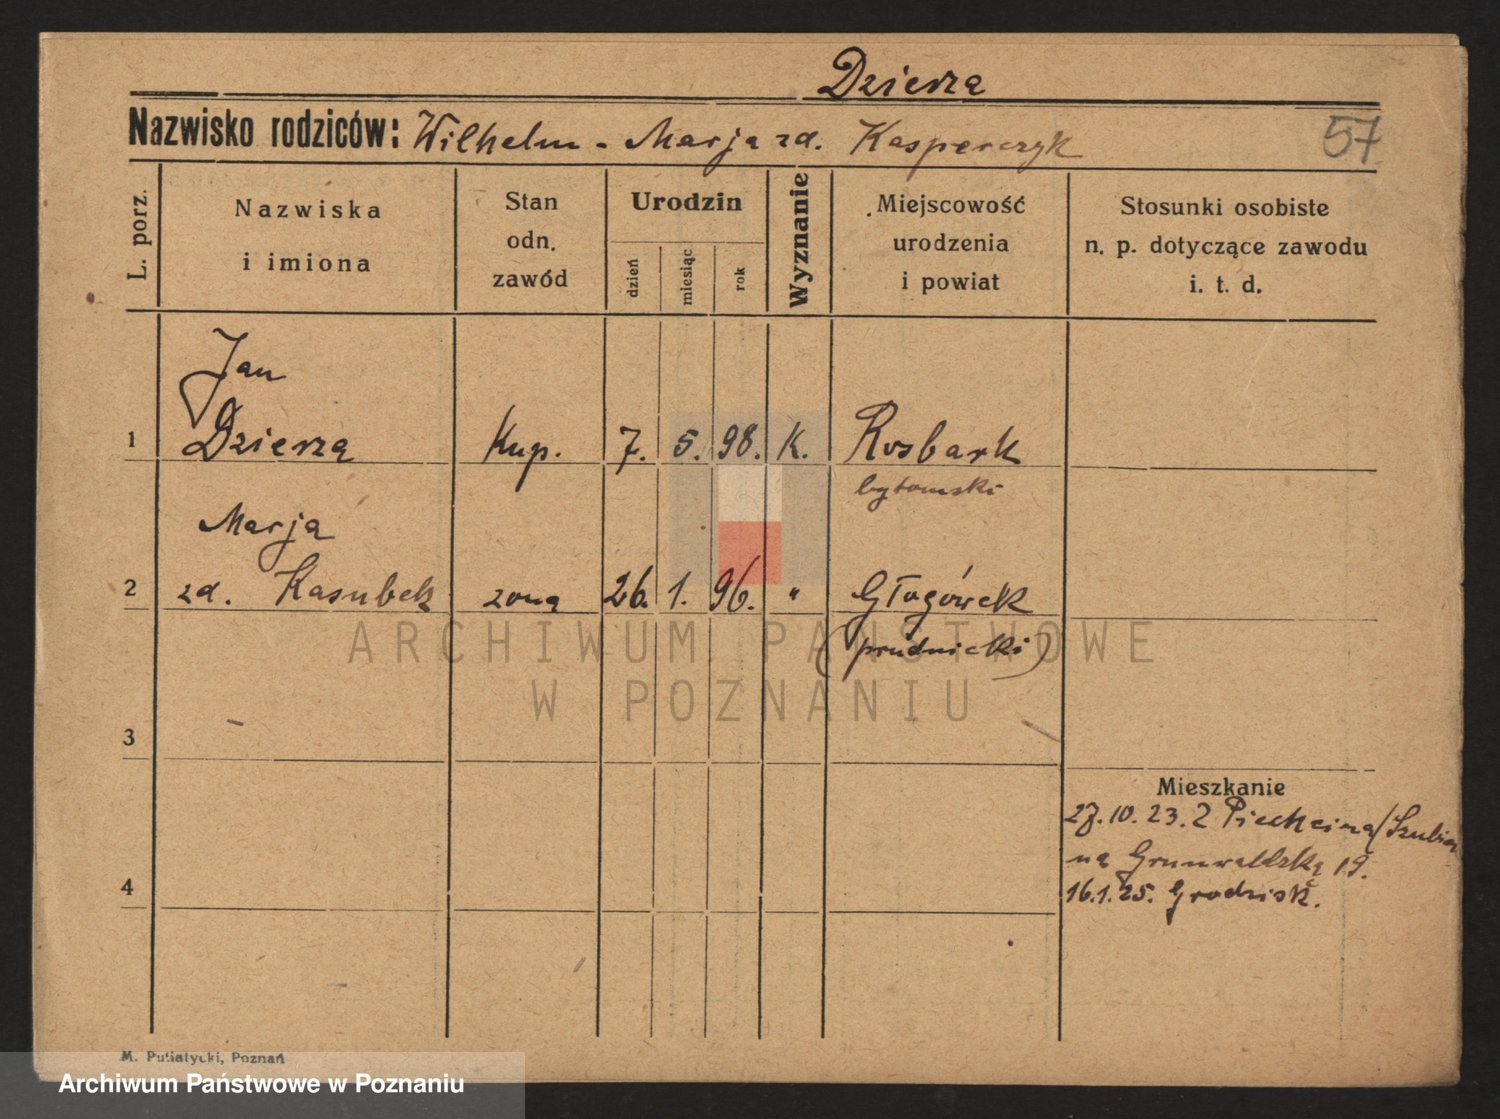 Dzierzą
Nazwisko rodziców: Wilhelm - Marja zd. Kasperczyk
57
L. porz.
Nazwiska
i imiona
Stan
odn.
zawód
Urodzin
dzień
miesiąc
rok
Wyznanie
Miejscowość
urodzenia
i powiat
Stosunki osobiste
n. p. dotyczące zawodu
i. t. d.
Jan
1 Dzierzą Kup. 7. 5. 98. K. Rosbark
bytomski
Marja
2 zd. Kasubek żona 26. 1. 96. " Głogówek
(prudnicki)
ARCHIWUM PAŃSTWOWE
W POZNANIU
3
Mieszkanie
27.10.23. Z Piechcina (Szubin
na Grunwaldzką 19.
4
16.1.25. Grodzisk.
M. Putiatycki, Poznań
Archiwum Państwowe w Poznaniu